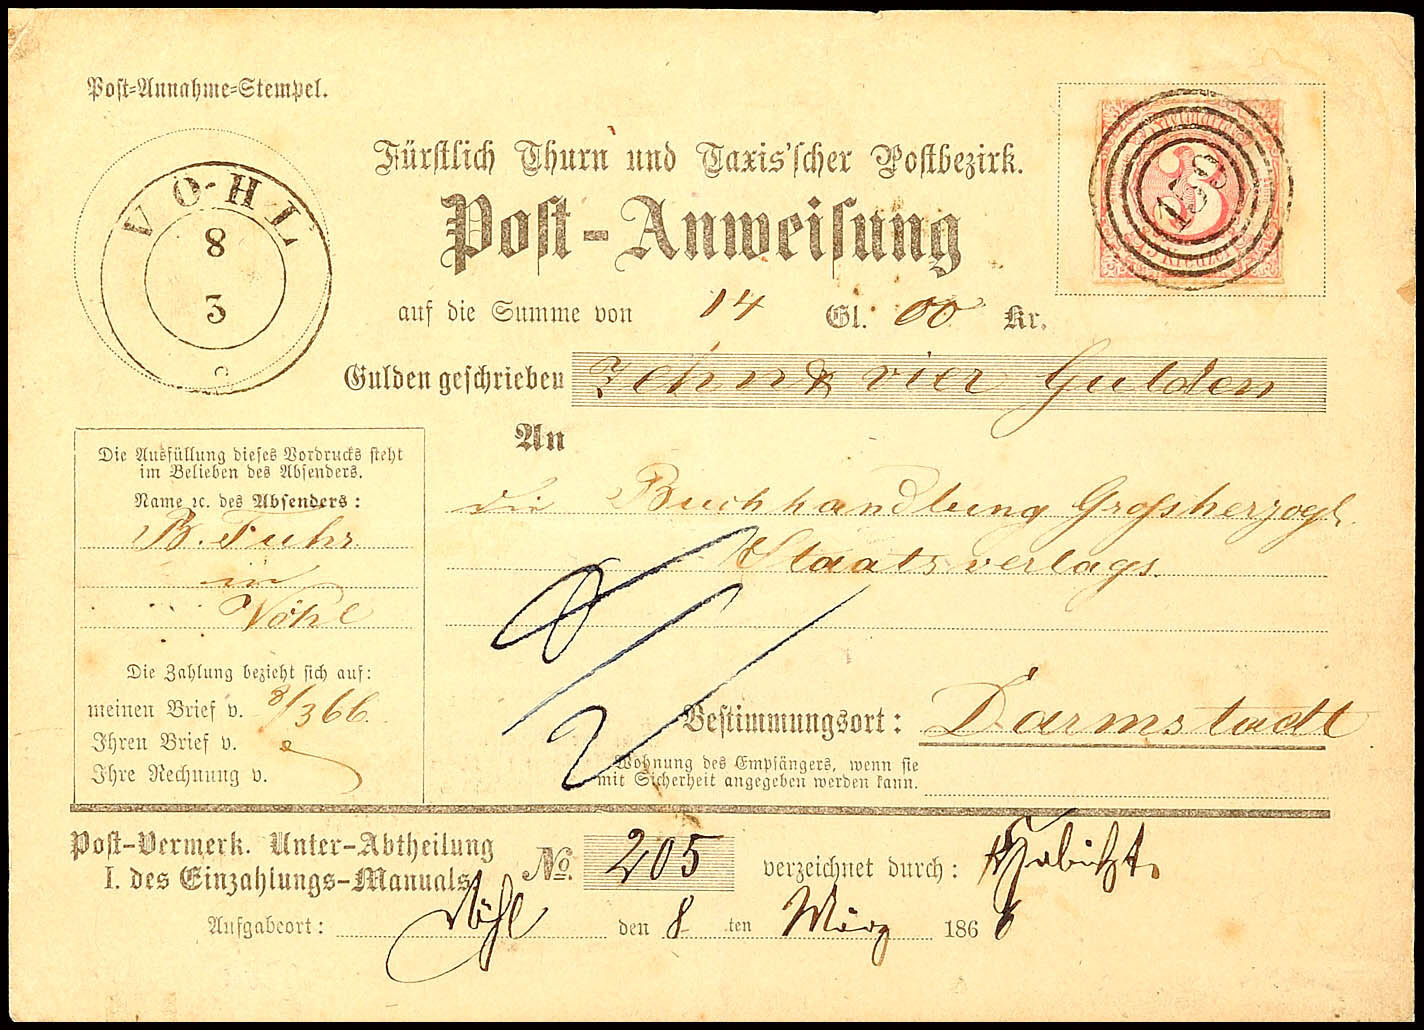 Post-Annahme-Stempel.
VÖHL
8
3
Fürstlich Thurn und Taxis'scher Postbezirk.
Post-Anweisung
auf die Summe von 14 Gl. 00 Kr.
3
Kreuzer
Gulden geschrieben Zehn & vier Gulden
An
die Buchhandlung Großherzogl.
Staatsverlags
Die Ausfüllung dieses Vordrucks steht
im Belieben des Absenders.
Name ꝛc. des Absenders:
B. Fuhr
in
Vöhl
Die Zahlung bezieht sich auf:
meinen Brief v. 8/3 66.
Ihren Brief v.
Ihre Rechnung v.
Bestimmungsort: Darmstadt
Wohnung des Empfängers, wenn sie
mit Sicherheit angegeben werden kann.
Post-Vermerk. Unter-Abtheilung
I. des Einzahlungs-Manuals
No. 205 verzeichnet durch:
Aufgabeort: Vöhl den 8 ten März 1866